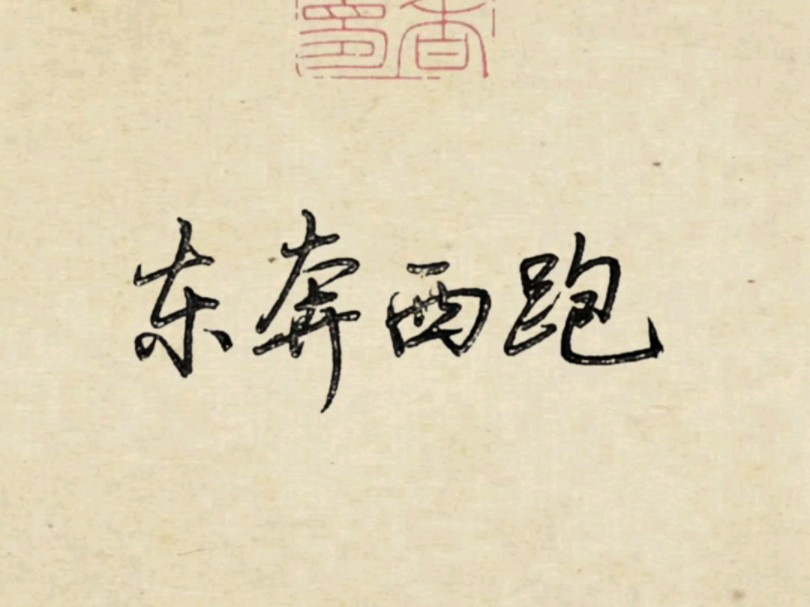 东奔西跑